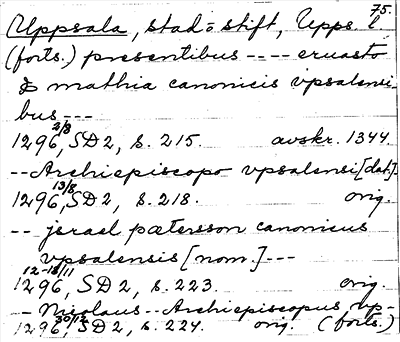 75.
Uppsala, stad o stift, Upps. l.
(forts.) presentibus ---- eruasto
& mathia canonicis vpsalensi-
bus ---
1296 2/8, SD2, s. 215. avskr. 1344.
-- Archiepiscopo vpsalensi [dat.]
1296 13/8, SD2, s. 218. orig.
-- jsrael pætersson canonicus
vpsalensis [nom.] ---
12-18/11
1296, SD2, s. 223. orig.
- Nicolaus -- Archiepiscopus vp-
1296 30/12, SD2, s. 224. orig. (forts.)